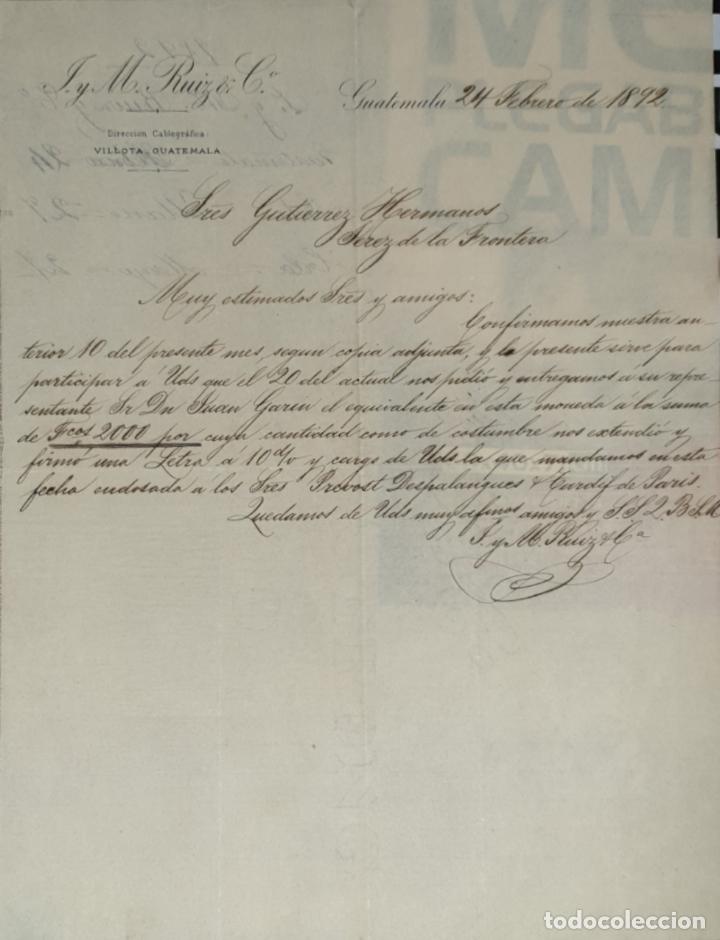 J. y M. Ruiz & Cº
Guatemala 24 Febrero de 1892.
Direccion Cablegráfica:
VILLOTA-GUATEMALA
Sres Gutierrez Hermanos
Jerez de la Frontera
Muy estimados Sres y amigos:
Confirmamos nuestra an-
terior 10 del presente mes, segun copia adjunta, y la presente sirve para
participar á Uds que el 20 del actual nos pidió y entregamos á su repre-
sentante Sr Dn Juan Garin el equivalente en esta moneda á la suma
de Fcos 2000 por cuya cantidad como de costumbre nos extendió y
firmó una Letra á 10 d/v y cargo de Uds. la que mandamos en esta
fecha endosada á los Sres Prevost Despalangues & Tardif de Paris.
Quedamos de Uds muy afmos amigos y S.S.Q.B.S.M
J. y M. Ruiz & Ca
todocoleccion